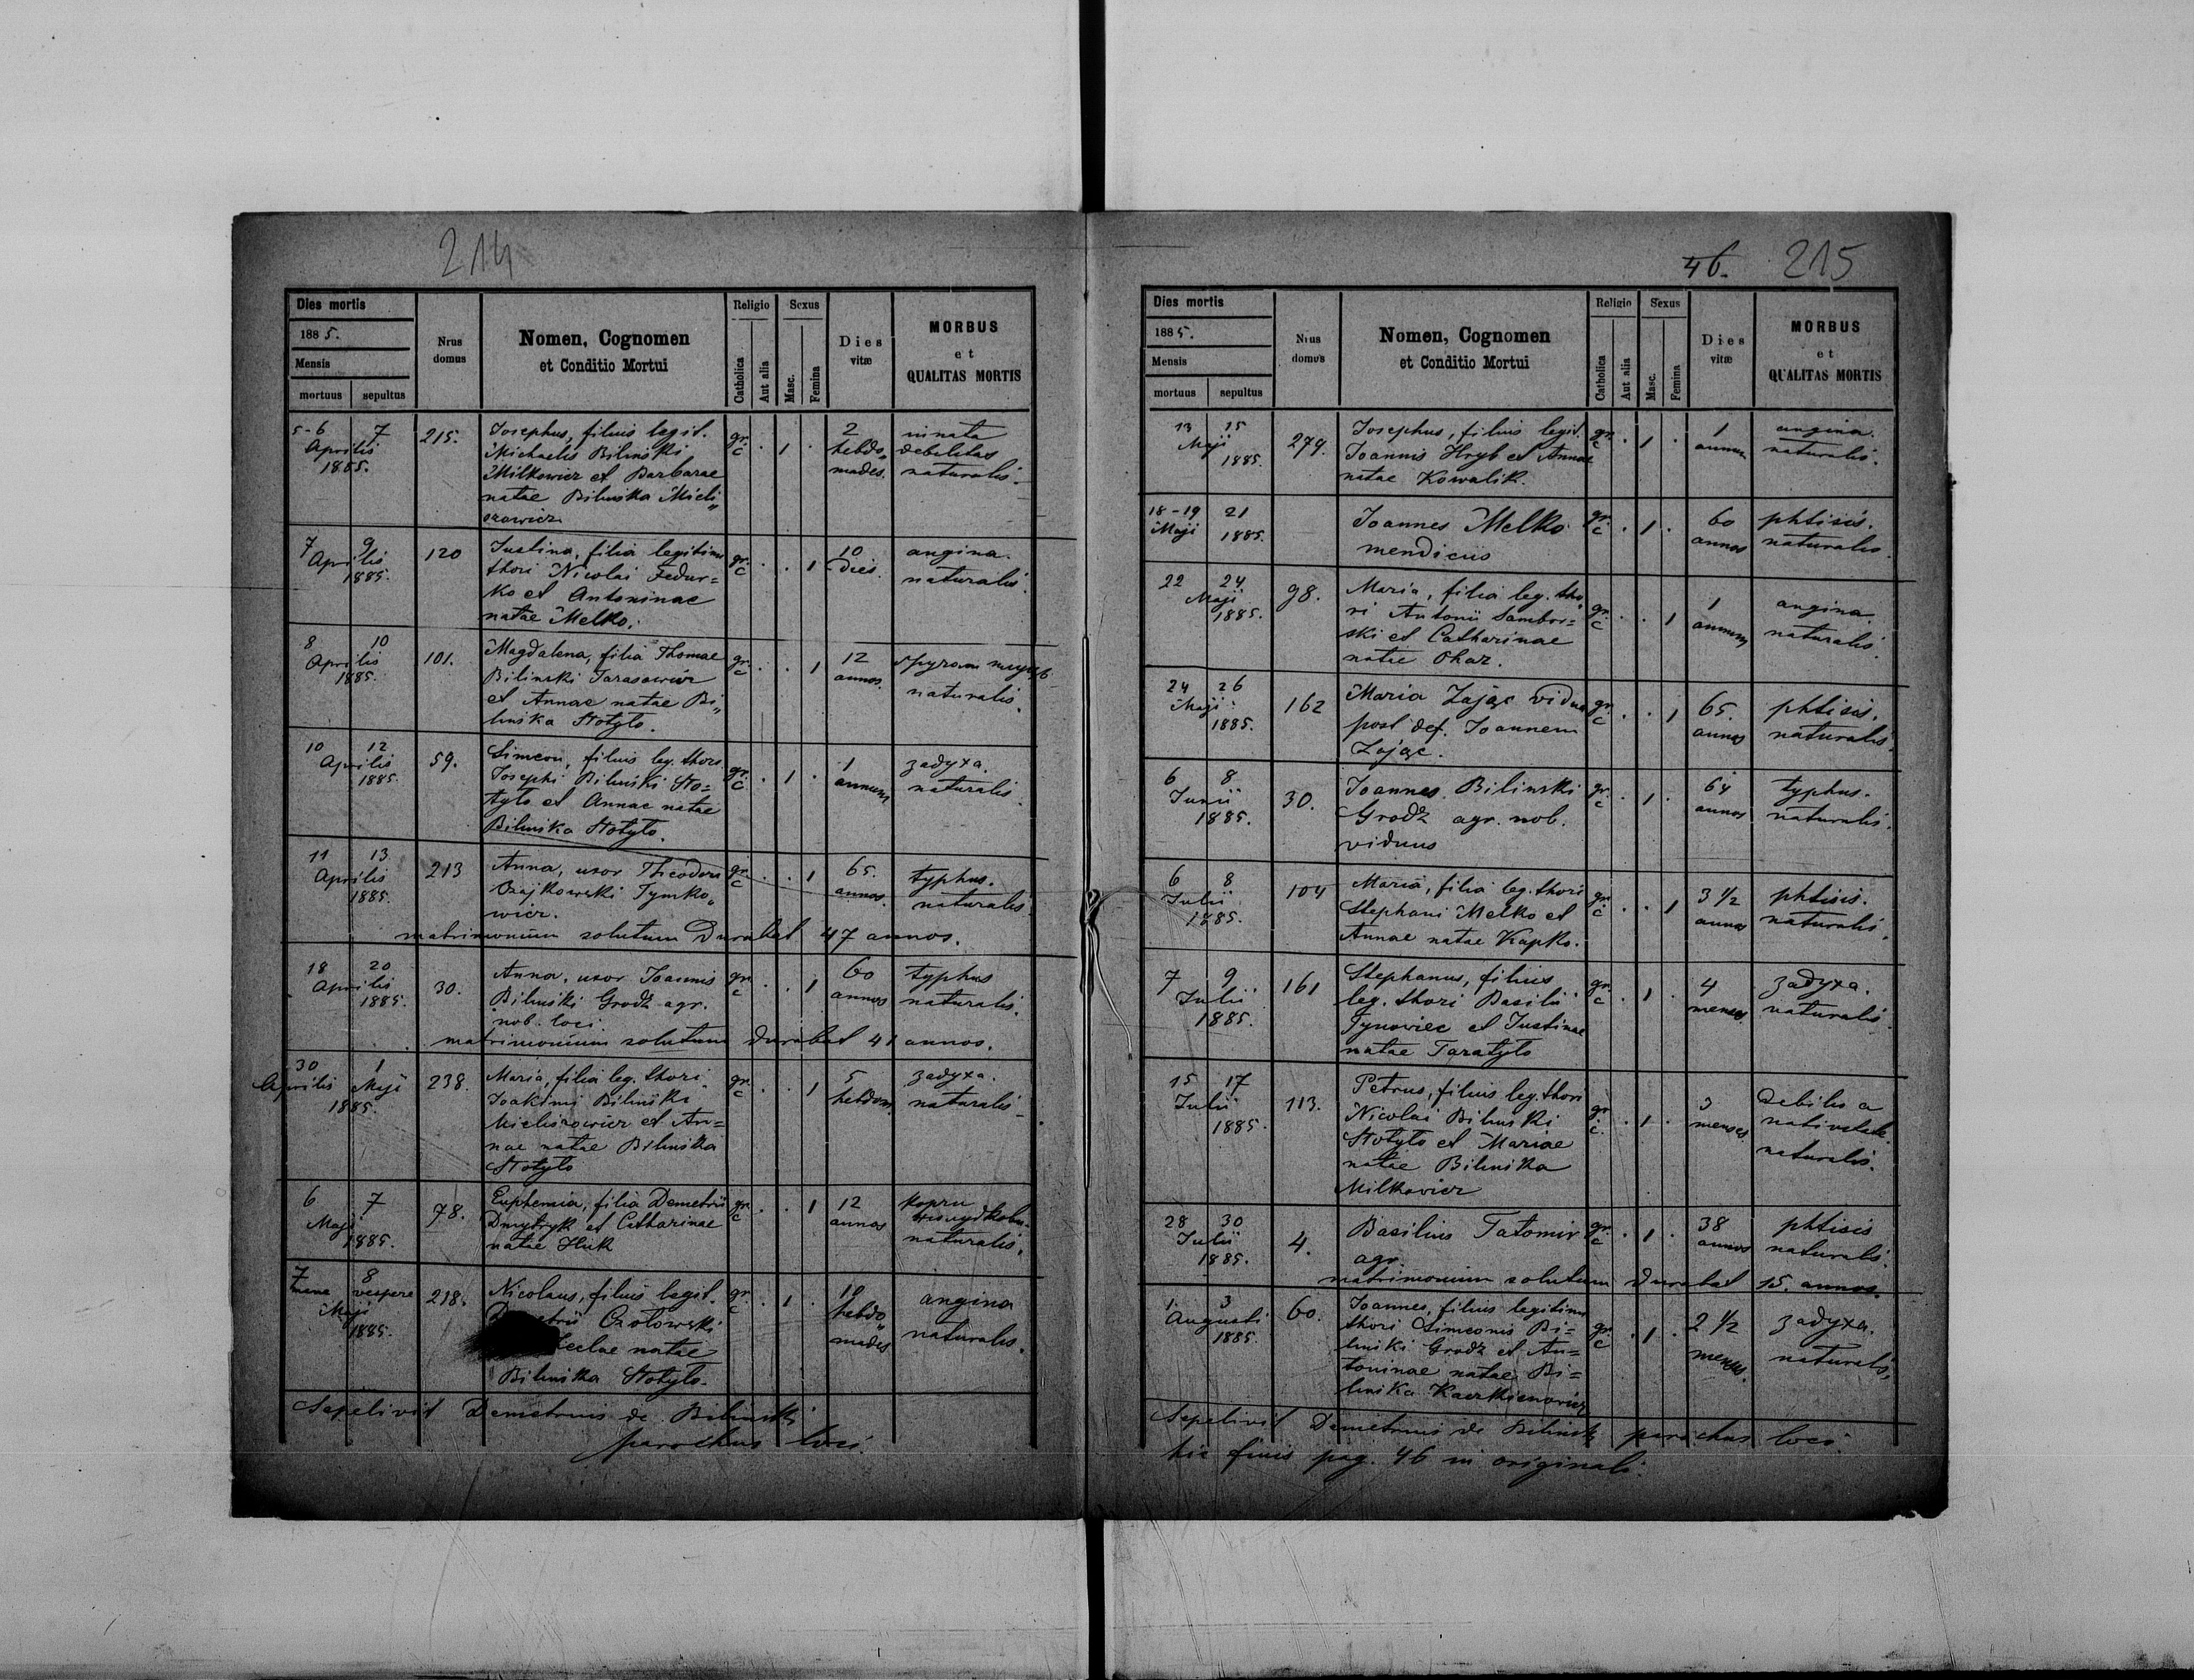 214
Dies mortis
1885.
Mensis
mortuus sepultus
Nrus domus
Nomen, Cognomen
et Conditio Mortui
Religio
Catholica
Aut alia
Sexus
Masc.
Femina
Dies vitæ
MORBUS
et
QUALITAS MORTIS
5-6 7 215. Josephus, filius legit. gr. c . 1 . 2 innata
Aprilis Michaelis Biliński hebdo„ debilitas
1885. Milkowicz et Barbarae mades. naturalis.
natae Bilińska Mieli„
szowicz
7 9 120 Justina, filia legitimi gr. c . . 1 10 angina.
Aprilis thori Nicolai Fedur= dies. naturalis.
1885. ko et Antoninae
natae Melko.
8 10 101. Magdalena, filia Thomae gr. c . . 1 12
Aprilis Bilinski Tarasowicz annos. naturalis.
1885. et Annae natae Bi„
lińska Stotyło.
10 12 59. Simeon, filius leg. thori gr. c . 1 . 1 zadyxa.
Aprilis Josephi Biliński Sto= annum naturalis.
1885. tyło et Annae natae
Bilińska Stotyło.
11 13 213 Anna, uxor Theodori gr. c . . 1 65. typhus.
Aprilis Czajkowski Tymko„ annos. naturalis.
1885. wicz.
matrimonium solutum durabat 47 annos.
18 20 30. Anna, uxor Joannis gr. c . . 1 60 typhus
Aprilis Biliński Grodź agr. annos naturalis.
1885. nob. loci.
matrimonium solutum durabat 41 annos.
30 1 238. Maria, filia leg. thori gr. c . . 1 5 zadyxa.
Aprilis Maji Joakimi Biliński hebdom. naturalis
1885. Mieliszowicz et An=
nae natae Bilińska
Stotyło
6 7 78. Euphemia, filia Demetrii gr. c . . 1 12
Maji Dmytryk et Catharinae annos
1885. natae Huk naturalis.
7 8 218. Nicolaus, filius legit. gr. c . 1 . 10 angina
mane vespere Czołowski hebdo„ naturalis.
Maji natae mades
1885. Bilińska Stotyło.
Sepelivit Demetrius de Bilinski
parochus loci.
46. 215
Dies mortis
1885.
Mensis
mortuus sepultus
Nrus domus
Nomen, Cognomen
et Conditio Mortui
Religio
Catholica
Aut alia
Sexus
Masc.
Femina
Dies vitæ
MORBUS
et
QUALITAS MORTIS
13 15 279. Josephus, filius legit. gr. c . 1 . 1 angina.
Maji Joannis Hryb et Annae annum naturalis.
1885. natae Kowalik.
18-19 21 Joannes Melko gr. c . 1 . 60 phtisis.
Maji 1885. mendicus annos naturalis.
22 24 98. Maria, filia leg. tho„ gr. c . . 1 1 angina.
Maji ri Antonii Sambor= annum naturalis.
1885. ski et Catharinae
natae Ohar.
24 26 162 Maria Zając vidua gr. c . . 1 65. phtisis.
Maji post def. Joannem annos naturalis.
1885. Zając.
6 8 30. Joannes Bilinski gr. c . 1 . 64 typhus.
Junii Grodź agr. nob. annos naturalis.
1885. viduus
6 8 104 Maria, filia leg. thori gr. c . . 1 3 1/2 phtisis.
Julii Stephani Melko et annos naturalis.
1885. Annae natae Kapko.
7 9 161 Stephanus, filius gr. c . 1 . 4 zadyxa.
Julii leg. thori Basilii menses naturalis.
1885. Tynowiec et Justinae
natae Taratyło
15 17 113. Petrus, filius leg. thori gr. c. . 1 . 3 debilis a
Julii Nicolai Biliński menses nativitate
1885. Stotyło et Mariae naturalis.
natae Bilińska
Milkowicz
28 30 4. Basilius Tatomir gr. c . 1 . 38 phtisis
Julii agr. annos naturalis.
1885.
matrimonium solutum durabat 15. annos.
1. 3 60. Joannes, filius legitimi gr. c . 1 . 2 1/2 zadyxa.
Augusti thori Simeonis Bi= menses. naturalis.
1885. liński Grodź et An=
toninae natae Bi=
lińska Kaczkienowicz
Sepelivit Demetrius de Bilinski parochus loci.
hic finis pag. 46 in originali.